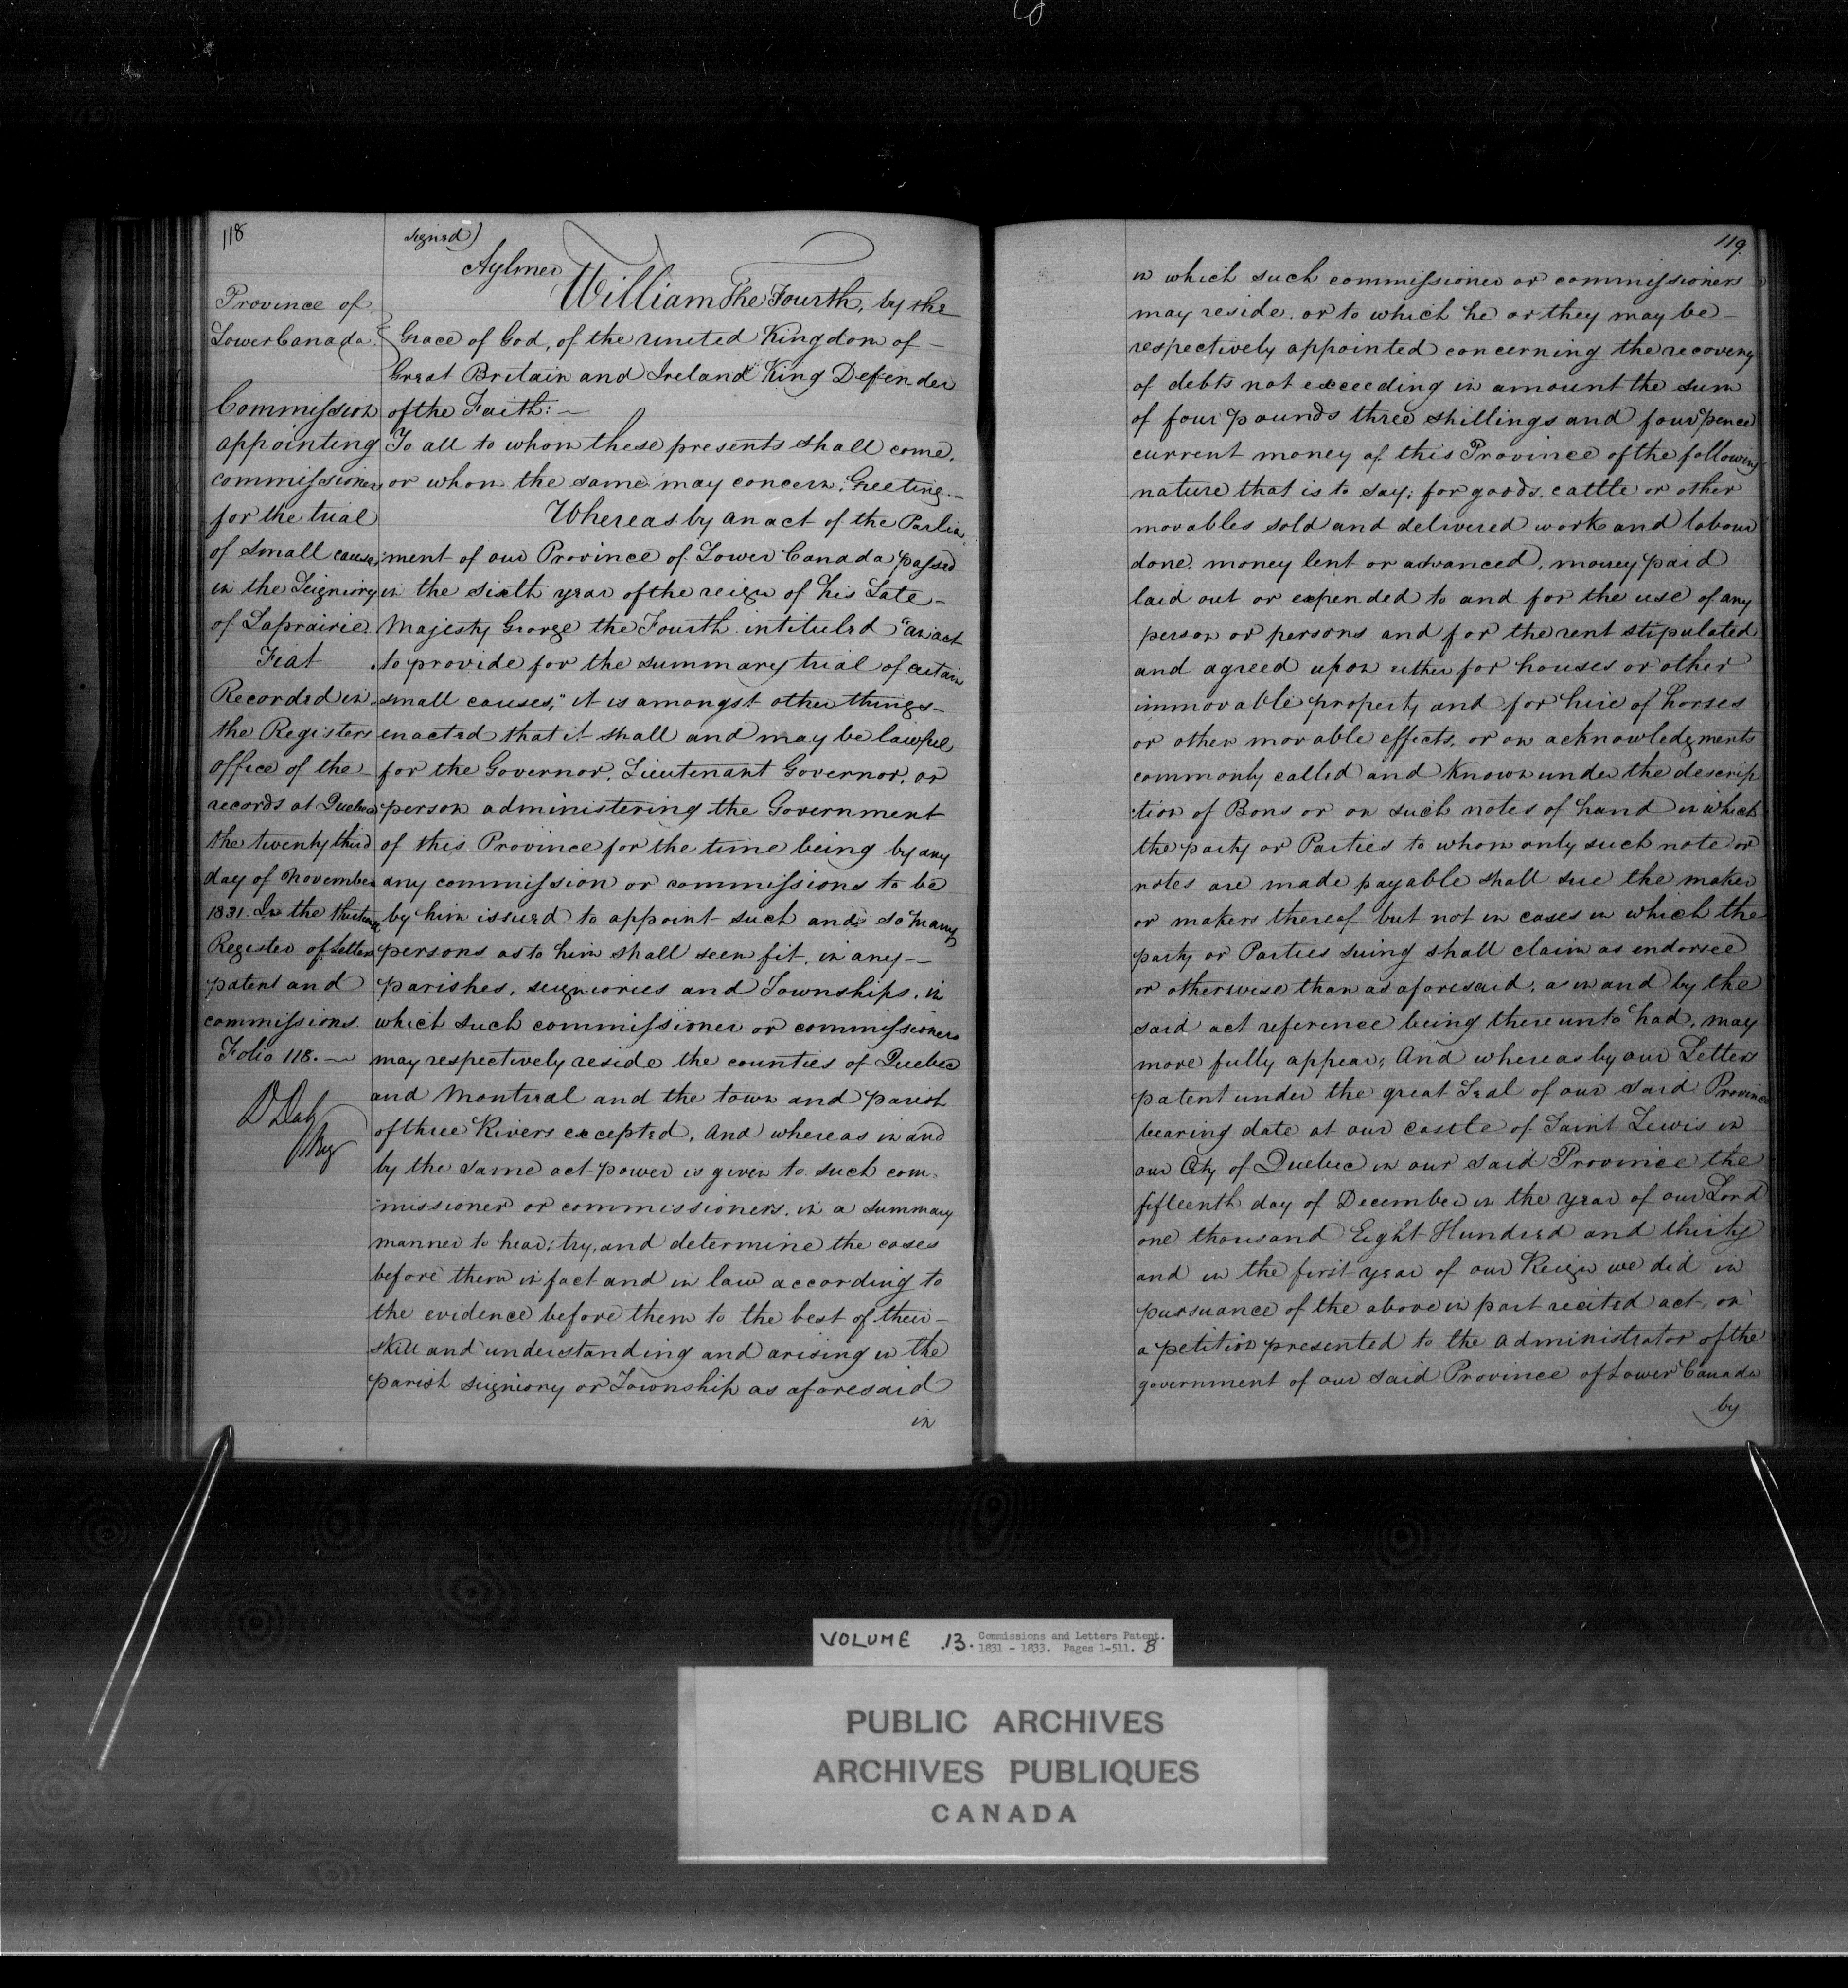 118
signed)
Aylmer
Province of
Lower Canada.
Commission
appointing
commissioners
for the trial
of small causes
in the Seigniory
of Laprairie.
Fiat
Recorded in
the Registers
office of the
records at Quebec
the twenty third
day of November
1831. In the thirteenth
Register of Letters
patent and
commissions.
Folio 118. —
D Daly
Reg
William The Fourth, by the
Grace of God, of the united Kingdom of —
Great Britain and Ireland King Defender
of the Faith: —
To all to whom these presents shall come,
or whom the same may concern. Greeting. —
Whereas by an act of the Parlia
"ment of our Province of Lower Canada passed
in the sixth year of the reign of his Late —
Majesty George the Fourth intituled "an act
"to provide for the summary trial of certain
"small causes," it is amongst other things —
enacted that it shall and may be lawful
for the Governor, Lieutenant Governor, or
person administering the Government
of this Province for the time being by any
any commission or commissions to be
by him issued to appoint such and so many
persons as to him shall seem fit, in any --
parishes, seigniories and Townships, in
which such commissioner or commissioners
may respectively reside the counties of Quebec
and Montreal and the town and parish
of three Rivers excepted, And whereas in and
by the same act power is given to such com-
"missioner or commissioners, in a summary
manner to hear, try, and determine the cases
before them in fact and in law according to
the evidence before them to the best of their —
skill and understanding and arising in the
parish seigniory or Township as aforesaid
in
119
in which such commissioner or commissioners
may reside, or to which he or they may be —
respectively appointed concerning the recovery
of debts not exceeding in amount the sum
of four pounds three shillings and four pence
current money of this Province of the following
nature that is to say; for goods, cattle or other
movables sold and delivered work and labour
done, money lent or advanced, money paid
laid out or expended to and for the use of any
person or persons and for the rent stipulated
and agreed upon either for houses or other
immovable property and for hire of horses
or other movable effects, or on acknowledgments
commonly called and known under the descrip
"tion of Bons or on such notes of hand in which
the party or Parties to whom only such note or
notes are made payable shall sue the maker
or makers thereof but not in cases in which the
party or Parties suing shall claim as endorsee
or otherwise than as aforesaid, as in and by the
said act reference being thereunto had, may
more fully appear; And whereas by our Letters
patent under the great Seal of our said Province
bearing date at our castle of Saint Lewis in
our City of Quebec in our said Province the
fifteenth day of December in the year of our Lord
one thousand Eight Hundred and thirty
and in the first year of our Reign we did in
pursuance of the above in part recited act, on
a petition presented to the administrator of the
government of our said Province of Lower Canada
by
VOLUME .13. Commissions and Letters Patent.
1831 - 1833. Pages 1-511. B
PUBLIC ARCHIVES
ARCHIVES PUBLIQUES
CANADA